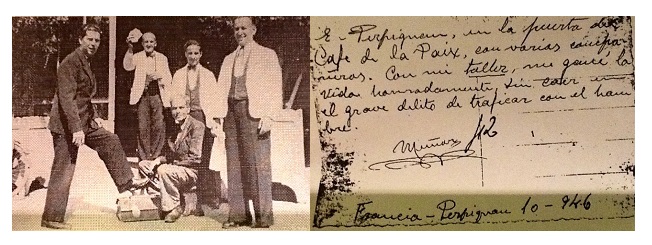 En Perpignan, en la puerta del
Cafe de la Paix, con varios compa-
ñeros. Con mi taller, me gané la
vida honradamente, sin caer en
el grave delito de traficar con el ham
bre.
Muñoz
Francia - Perpignan 10-946